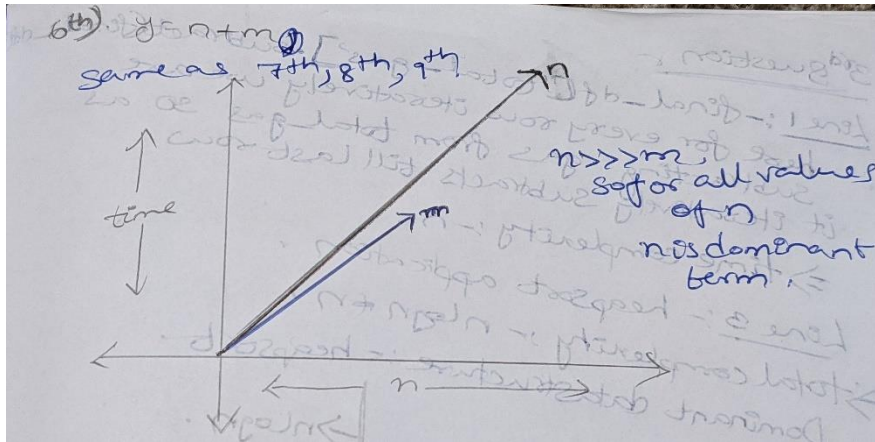 6th) y = n+m
same as 7th, 8th, 9th.
n
n>>>m,
so for all values
of n
n is dominant
term.
m
time
n